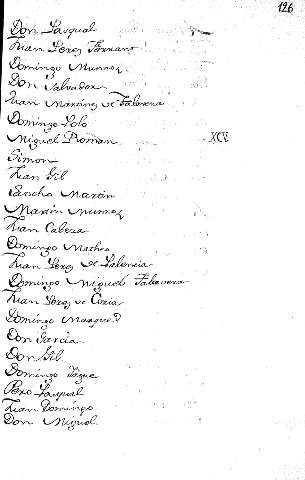 126
Don Pasqual
Juan Perez Serrano
Domingo Munnoz
Don Salvador
Juan Martinez de Talavera
Domingo Polo
Miguel Roman XCV
Simon
Juan Gil
Sancho Martin
Martin Munnoz
Juan Cabeza
Domingo Matheo
Juan Perez de Palencia
Domingo Miguel Talavera
Juan Perez de Coria
Domingo
Don Garcia
Don Gil
Domingo Yague
Pero Pasqual
Juan Domingo
Don Miguel